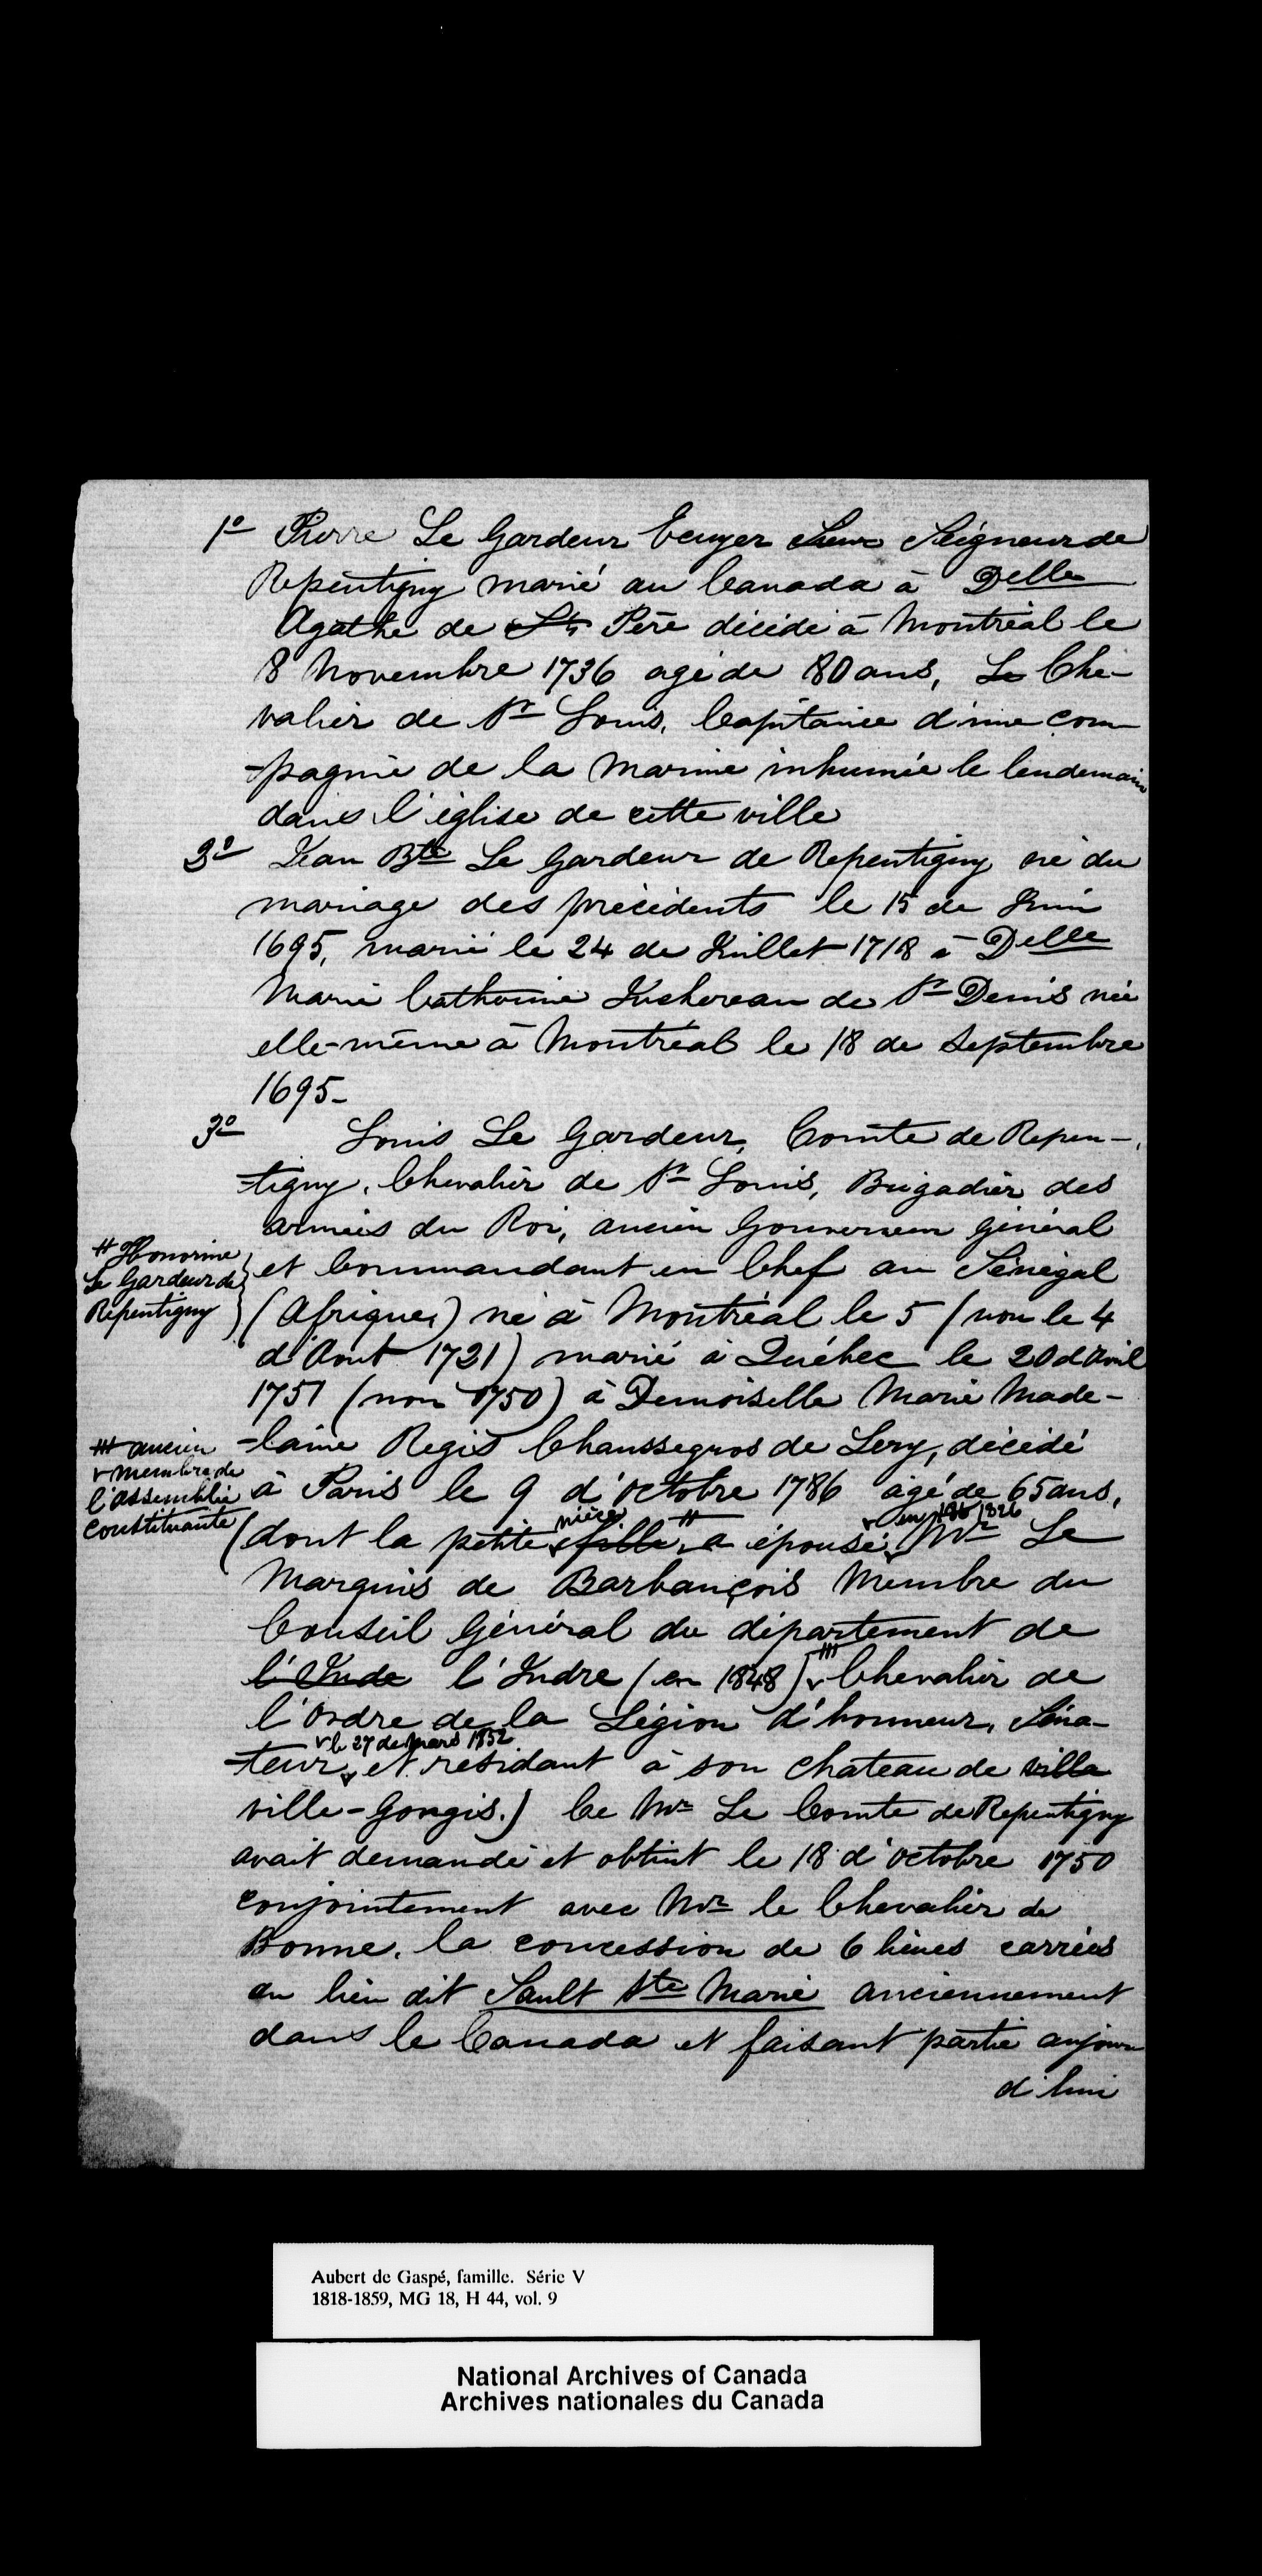 1º Pierre Le Gardeur Ecuyer Sieur Seigneur de
Repentigny marié au Canada à Delle
Agathe de St, Père décédé à Montréal le
8 Novembre 1736 agé de 80 ans, Le Che-
valier de St Louis, Capitaine d'une com
-pagnie de la Marine inhumée le lendemain
dans l'église de cette ville
2º Jean Bte Le Gardeur de Repentigny né du
mariage des précédents le 15 de Juin
1695, marié le 24 de Juillet 1718 à Delle
Marie Catherine Juchereau de St Denis née
elle-même à Montréal le 18 de Septembre
1695-
3º Louis Le Gardeur, Comte de Repen-
-tigny, Chevalier de St Louis, Brigadier des
armées du Roi, ancien Gouverneur général
# Honorine
Le Gardeur de
Repentigny
et Commandant en Chef au Sénégal
(Afrique) né à Montréal le 5 (non le 4
d'Aout 1721) marié à Québec le 20 d'avril
1751 (non 1750) à Demoiselle Marie Made-
-laine Regis Chaussegros de Lery, décédé
# ancien
membre de
l'assemblée
constituante
à Paris le 9 d'octobre 1786 agé de 65 ans,
nièce # en 1826
(dont la petite fille a épousé Mr Le
Marquis de Barbançois Membre du
Conseil Général du département de
l'Inde l'Indre (en 1848) # Chevalier de
l'Ordre de la Légion d'honneur, Séna-
le 27 de Mars 1852
-teur et residant à son chateau de ville
ville-Gongis.) Ce Mr Le Comte de Repentigny
avait demandé et obtint le 18 d'octobre 1750
conjointement avec Mr le Chevalier de
Bonne, la concession de 6 lieues carrées
au lieu dit Sault Ste Marie anciennement
dans le Canada et faisant partie aujour
d'hui
Aubert de Gaspé, famille. Série V
1818-1859, MG 18, H 44, vol. 9
National Archives of Canada
Archives nationales du Canada